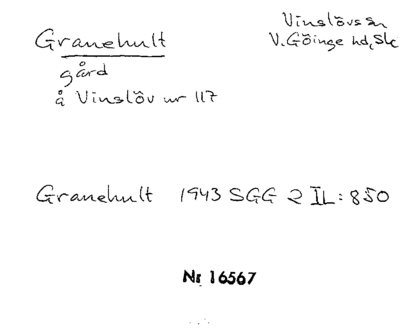 Granehult
Vinslövs sn
V. Göinge hd, Sk
gård
å Vinslöv nr 117
Granehult 1943 SGG 2 II: 850
Nr 16567